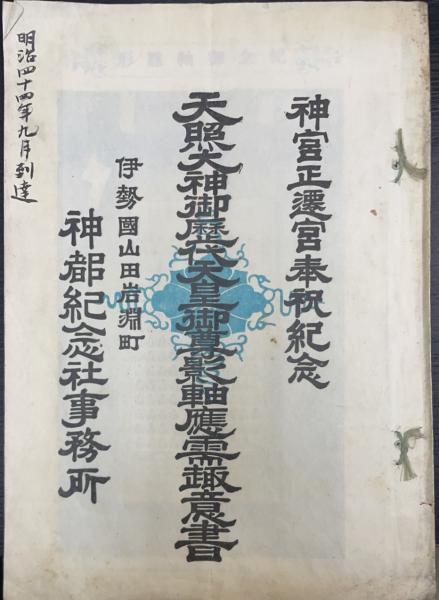 神宮正遷宮奉祝紀念
天照大神御歴代天皇御尊影軸應需趣意書
伊勢國山田岩淵町
神都紀念社事務所
明治四十四年九月到達